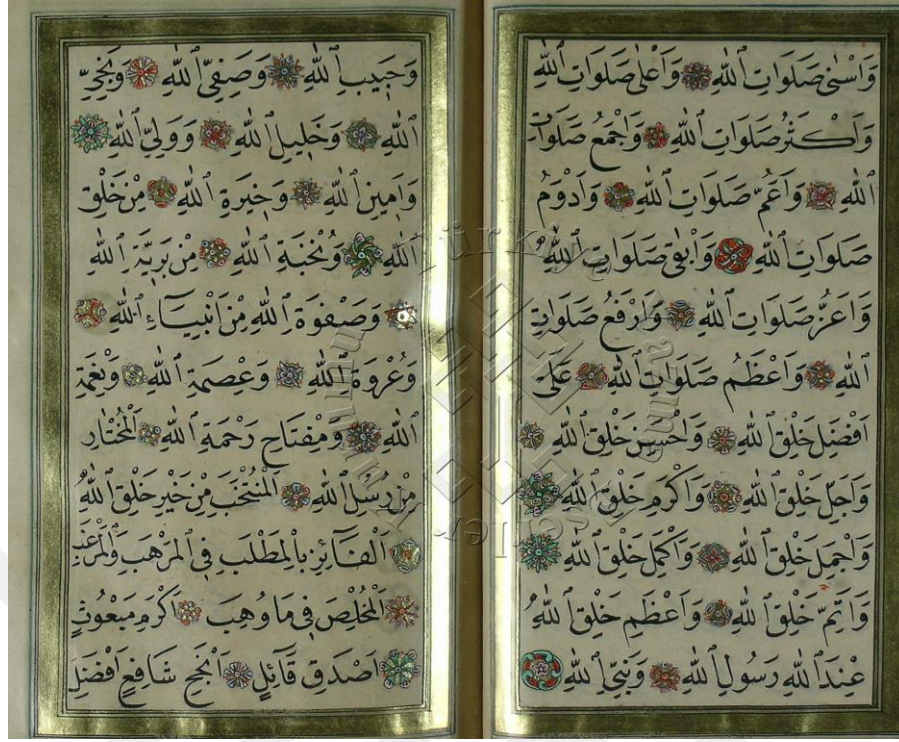 وَاَسْنٰى صَلَوَاتِ اللّٰهِ وَاَعْلٰى صَلَوَاتِ اللّٰهِ
وَاَكْثَرُ صَلَوَاتِ اللّٰهِ وَاَجْمَعُ صَلَوَاتِ
اللّٰهِ وَاَعَمُّ صَلَوَاتِ اللّٰهِ وَاَدْوَمُ
صَلَوَاتِ اللّٰهِ وَاَبْقٰى صَلَوَاتِ اللّٰهِ
وَاَعَزُّ صَلَوَاتِ اللّٰهِ وَاَرْفَعُ صَلَوَاتِ
اللّٰهِ وَاَعْظَمُ صَلَوَاتِ اللّٰهِ عَلٰى
اَفْضَلِ خَلْقِ اللّٰهِ وَاَحْسَنِ خَلْقِ اللّٰهِ
وَاَجَلِّ خَلْقِ اللّٰهِ وَاَكْرَمِ خَلْقِ اللّٰهِ
وَاَجْمَلِ خَلْقِ اللّٰهِ وَاَكْمَلِ خَلْقِ اللّٰهِ
وَاَتَمِّ خَلْقِ اللّٰهِ وَاَعْظَمِ خَلْقِ اللّٰهِ
عِنْدَ اللّٰهِ رَسُولِ اللّٰهِ وَنَبِيِّ اللّٰهِ
وَحَبِيبِ اللّٰهِ وَصَفِيِّ اللّٰهِ وَنَجِيِّ
اللّٰهِ وَخَلِيلِ اللّٰهِ وَوَلِيِّ اللّٰهِ
وَاَمِينِ اللّٰهِ وَخِيَرَةِ اللّٰهِ مِنْ خَلْقِ
اللّٰهِ وَنُخْبَةِ اللّٰهِ مِنْ بَرِيَّةِ اللّٰهِ
وَصَفْوَةِ اللّٰهِ مِنْ اَنْبِيَاءِ اللّٰهِ
وَعُرْوَةِ اللّٰهِ وَعِصْمَةِ اللّٰهِ وَنِعْمَةِ
اللّٰهِ وَمِفْتَاحِ رَحْمَةِ اللّٰهِ الْمُخْتَارِ
مِنْ رُسُلِ اللّٰهِ الْمُنْتَخَبِ مِنْ خَيْرِ خَلْقِ اللّٰهِ
اَلْفَائِزِ بِالْمَطْلَبِ فِى الْمَرْهَبِ وَالْمَرْغَبِ
اَلْمُخْلَصِ فِى مَا وُهِبَ اَكْرَمِ مَبْعُوثٍ
اَصْدَقِ قَائِلٍ اَنْجَحِ شَافِعٍ اَفْضَلِ